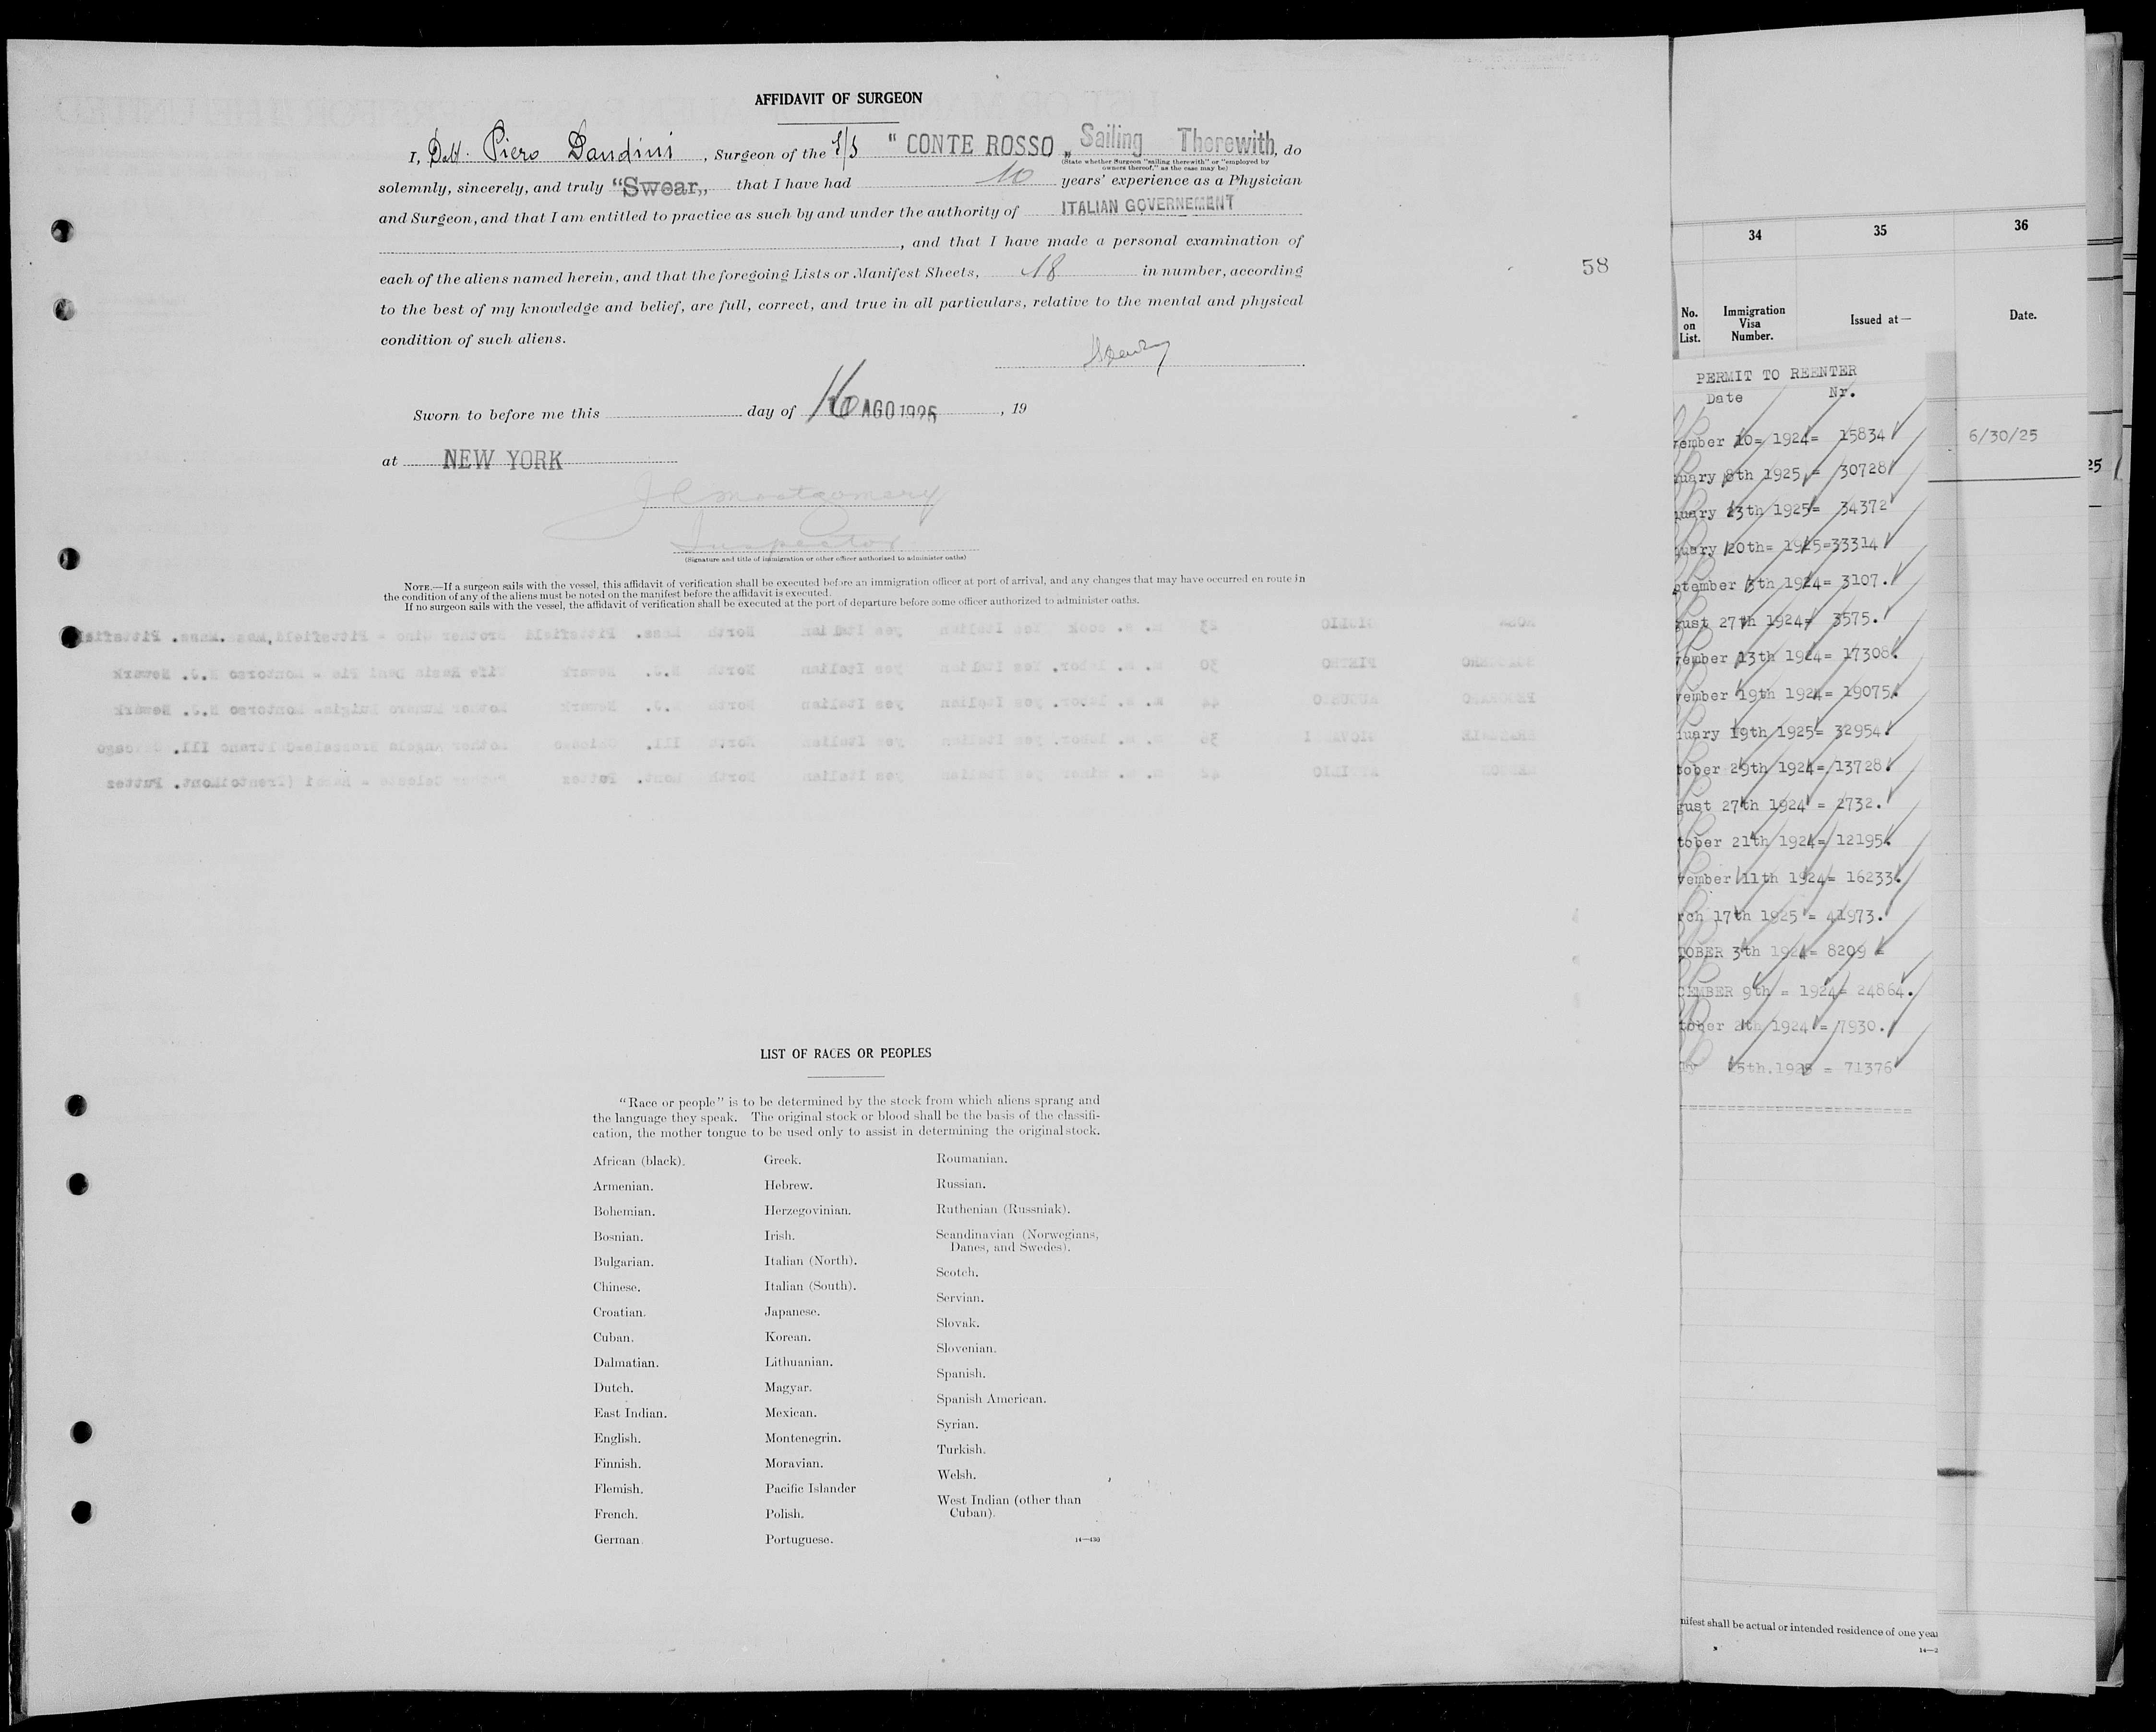 AFFIDAVIT OF SURGEON
I, Dott. Piero Dandini, Surgeon of the S/S " CONTE ROSSO „ Sailing Therewith, do
(State whether Surgeon "sailing therewith" or "employed by
owners thereof," as the case may be)
solemnly, sincerely, and truly "Swear„ that I have had 10 years' experience as a Physician
and Surgeon, and that I am entitled to practice as such by and under the authority of ITALIAN GOVERNEMENT
, and that I have made a personal examination of
each of the aliens named herein, and that the foregoing Lists or Manifest Sheets, 18 in number, according
to the best of my knowledge and belief, are full, correct, and true in all particulars, relative to the mental and physical
condition of such aliens.
Sworn to before me this day of 16 AGO 1925, 19
at NEW YORK
J R Montgomery
Inspector
(Signature and title of immigration or other officer authorized to administer oaths)
NOTE.—If a surgeon sails with the vessel, this affidavit of verification shall be executed before an immigration officer at port of arrival, and any changes that may have occurred en route in
the condition of any of the aliens must be noted on the manifest before the affidavit is executed.
If no surgeon sails with the vessel, the affidavit of verification shall be executed at the port of departure before some officer authorized to administer oaths.
58
LIST OF RACES OR PEOPLES
"Race or people" is to be determined by the stock from which aliens sprang and
the language they speak. The original stock or blood shall be the basis of the classifi-
cation, the mother tongue to be used only to assist in determining the original stock.
African (black).
Armenian.
Bohemian.
Bosnian.
Bulgarian.
Chinese.
Croatian.
Cuban.
Dalmatian.
Dutch.
East Indian.
English.
Finnish.
Flemish.
French.
German.
Greek.
Hebrew.
Herzegovinian.
Irish.
Italian (North).
Italian (South).
Japanese.
Korean.
Lithuanian.
Magyar.
Mexican.
Montenegrin.
Moravian.
Pacific Islander
Polish.
Portuguese.
Roumanian.
Russian.
Ruthenian (Russniak).
Scandinavian (Norwegians,
Danes, and Swedes).
Scotch.
Servian.
Slovak.
Slovenian.
Spanish.
Spanish American.
Syrian.
Turkish.
Welsh.
West Indian (other than
Cuban).
14—430
34 35 36
No.
on
List.
Immigration
Visa
Number.
Issued at—
Date.
PERMIT TO REENTER
Date Nr.
vember 10= 1924= 15834
nuary 8th 1925 = 30728
nuary 23th 1925= 34372
nuary 20th= 1925=33314
ptember 3th 1924= 3107.
gust 27th 1924= 3575.
vember 13th 1924= 17308.
vember 19th 1924= 19075.
nuary 19th 1925= 32954.
tober 29th 1924= 13728.
gust 27th 1924 = 2732.
tober 21th 1924= 12195.
vember 11th 1924= 16233.
rch 17th 1925 = 41973.
TOBER 3th 1924= 8209 =
CEMBER 9th = 1924= 24864.
tober 2th 1924 = 7930.
15th.1925 = 71376
6/30/25
25
nifest shall be actual or intended residence of one year
14—2